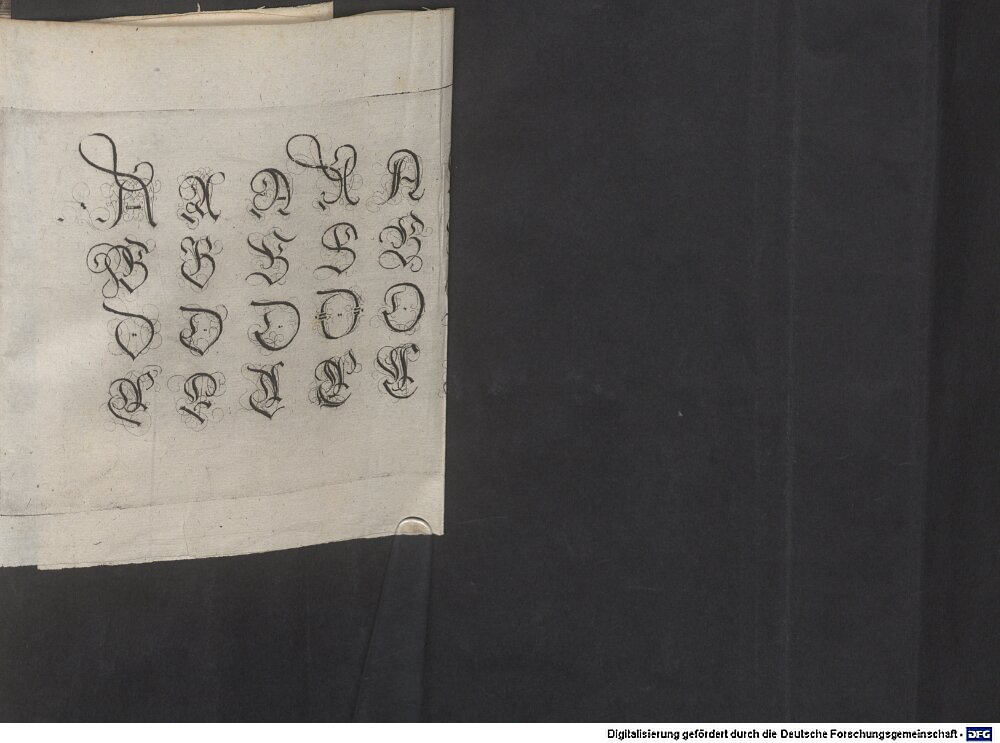 A A A A A
B B B B B
D D D D D
Digitalisierung gefördert durch die Deutsche Forschungsgemeinschaft - DFG